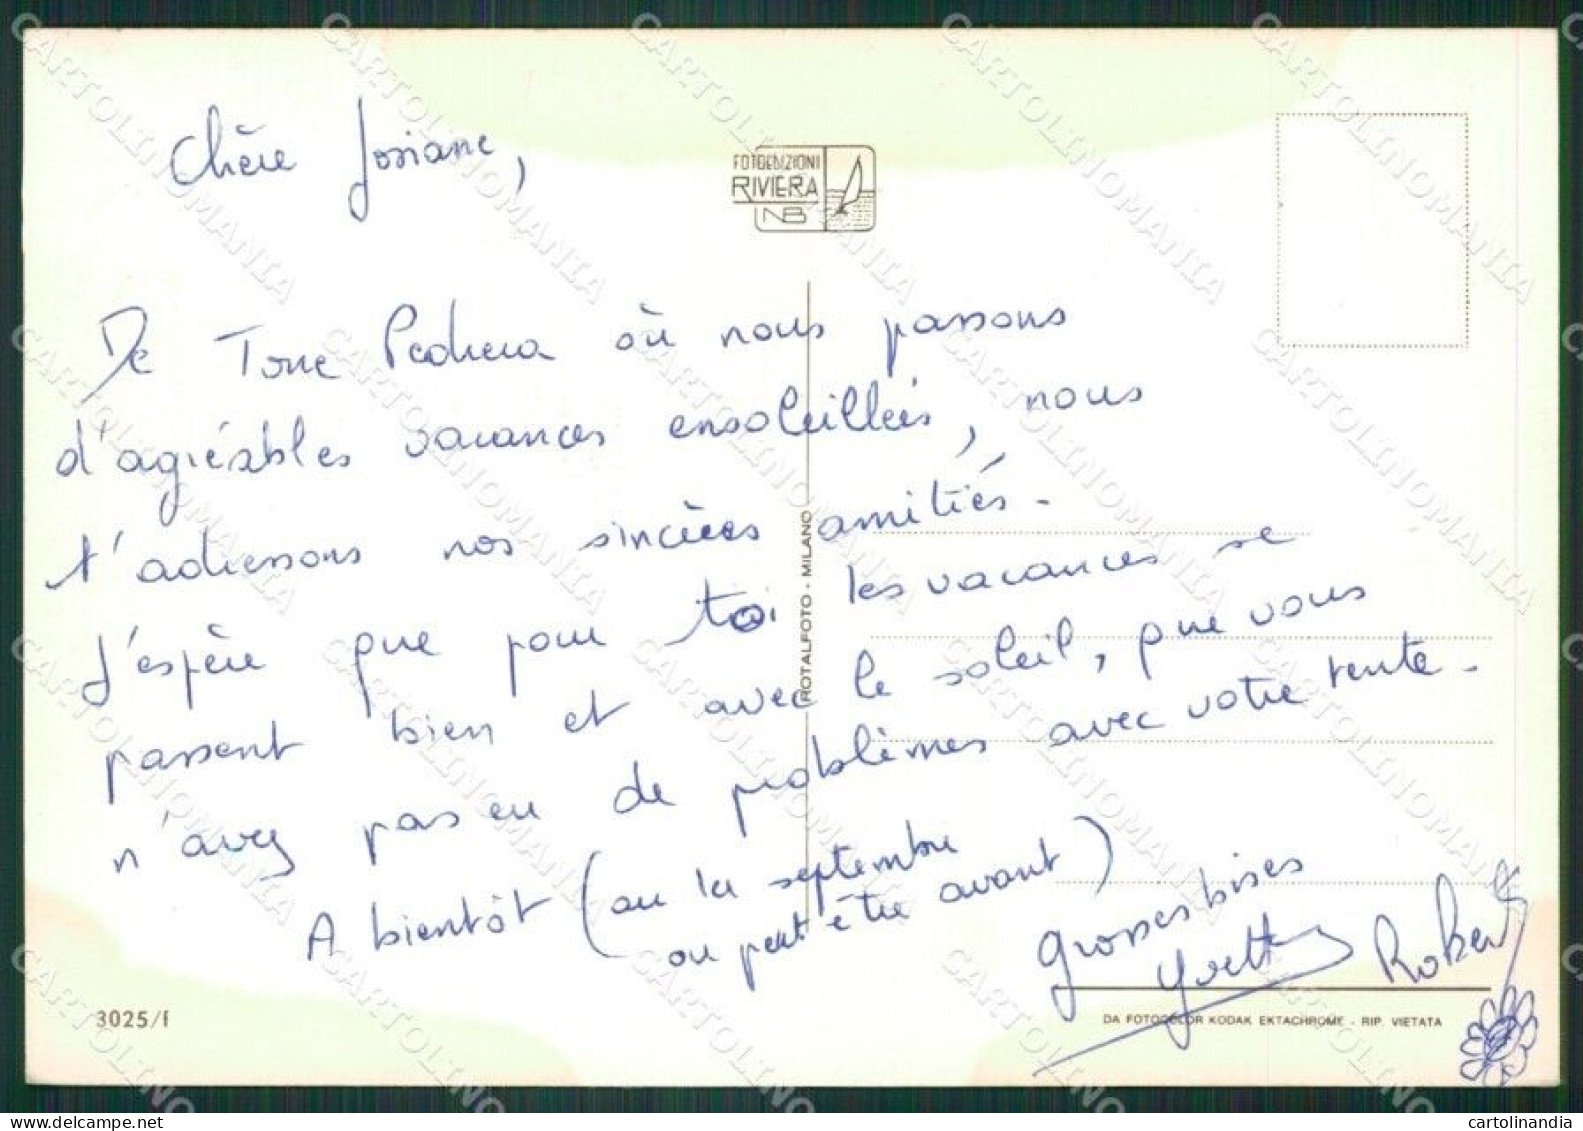 Chère Josiane,
FOTOEDIZIONI
RIVIERA
NB
De Torre Pedrera où nous passons
d'agréables vacances ensoleillées, nous
t'adressons nos sincères amitiés.
J'espère que pour toi les vacances se
passent bien et avec le soleil, que vous
n'avez pas eu de problèmes avec votre tente.
A bientôt (au 1er septembre
ou peut être avant)
Grosses bises
Yvette Robert
ROTALFOTO - MILANO
3025/f
DA FOTOCOLOR KODAK EKTACHROME - RIP. VIETATA
CARTOLINOMANIA
cartolinandia